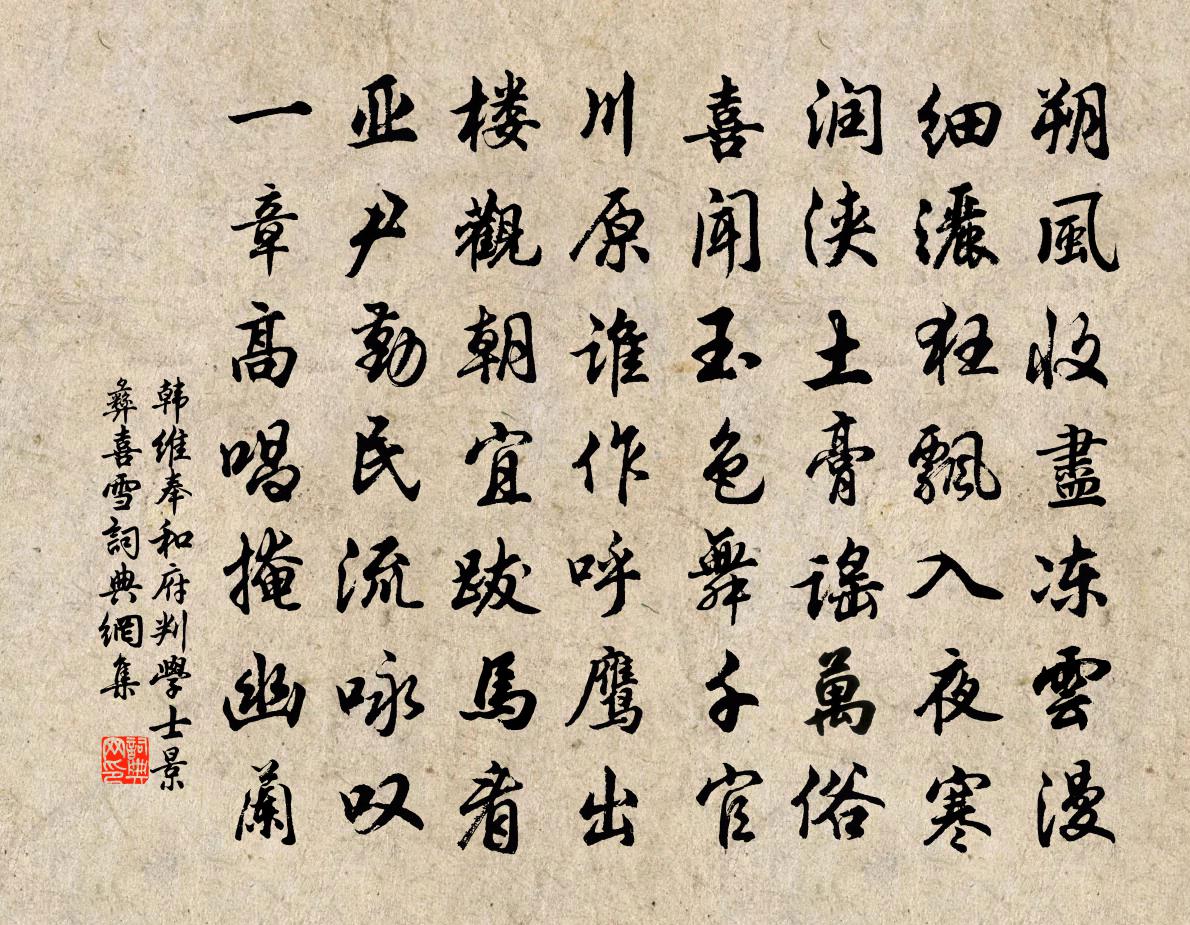 朔風收盡冻雲漫
细灑狂飄入夜寒
润浃土膏謡萬俗
喜闻玉色舞千官
川原谁作呼鹰出
楼觀朝宜跋馬看
亚尹勤民流咏叹
一章高唱掩幽蘭
韩维奉和府判學士景
彝喜雪詞典網集
詞典网印